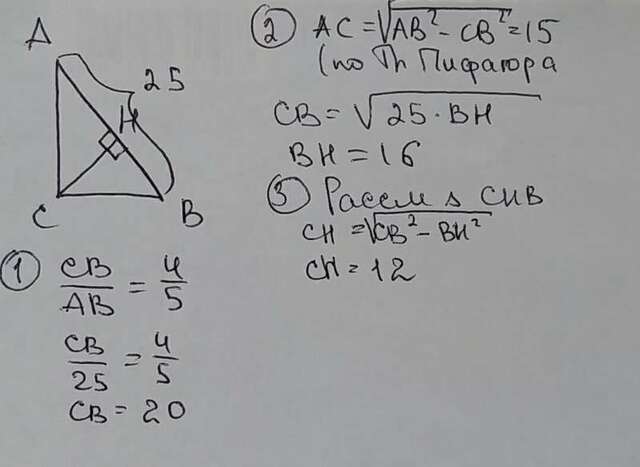 A
25
H
C
B
① CB/AB = 4/5
CB/25 = 4/5
CB = 20
② AC = √(AB² - CB²) = 15
(по Th Пифагора
CB = √(25 · BH)
BH = 16
③ Рассм Δ CHB
CH = √(CB² - BH²)
CH = 12